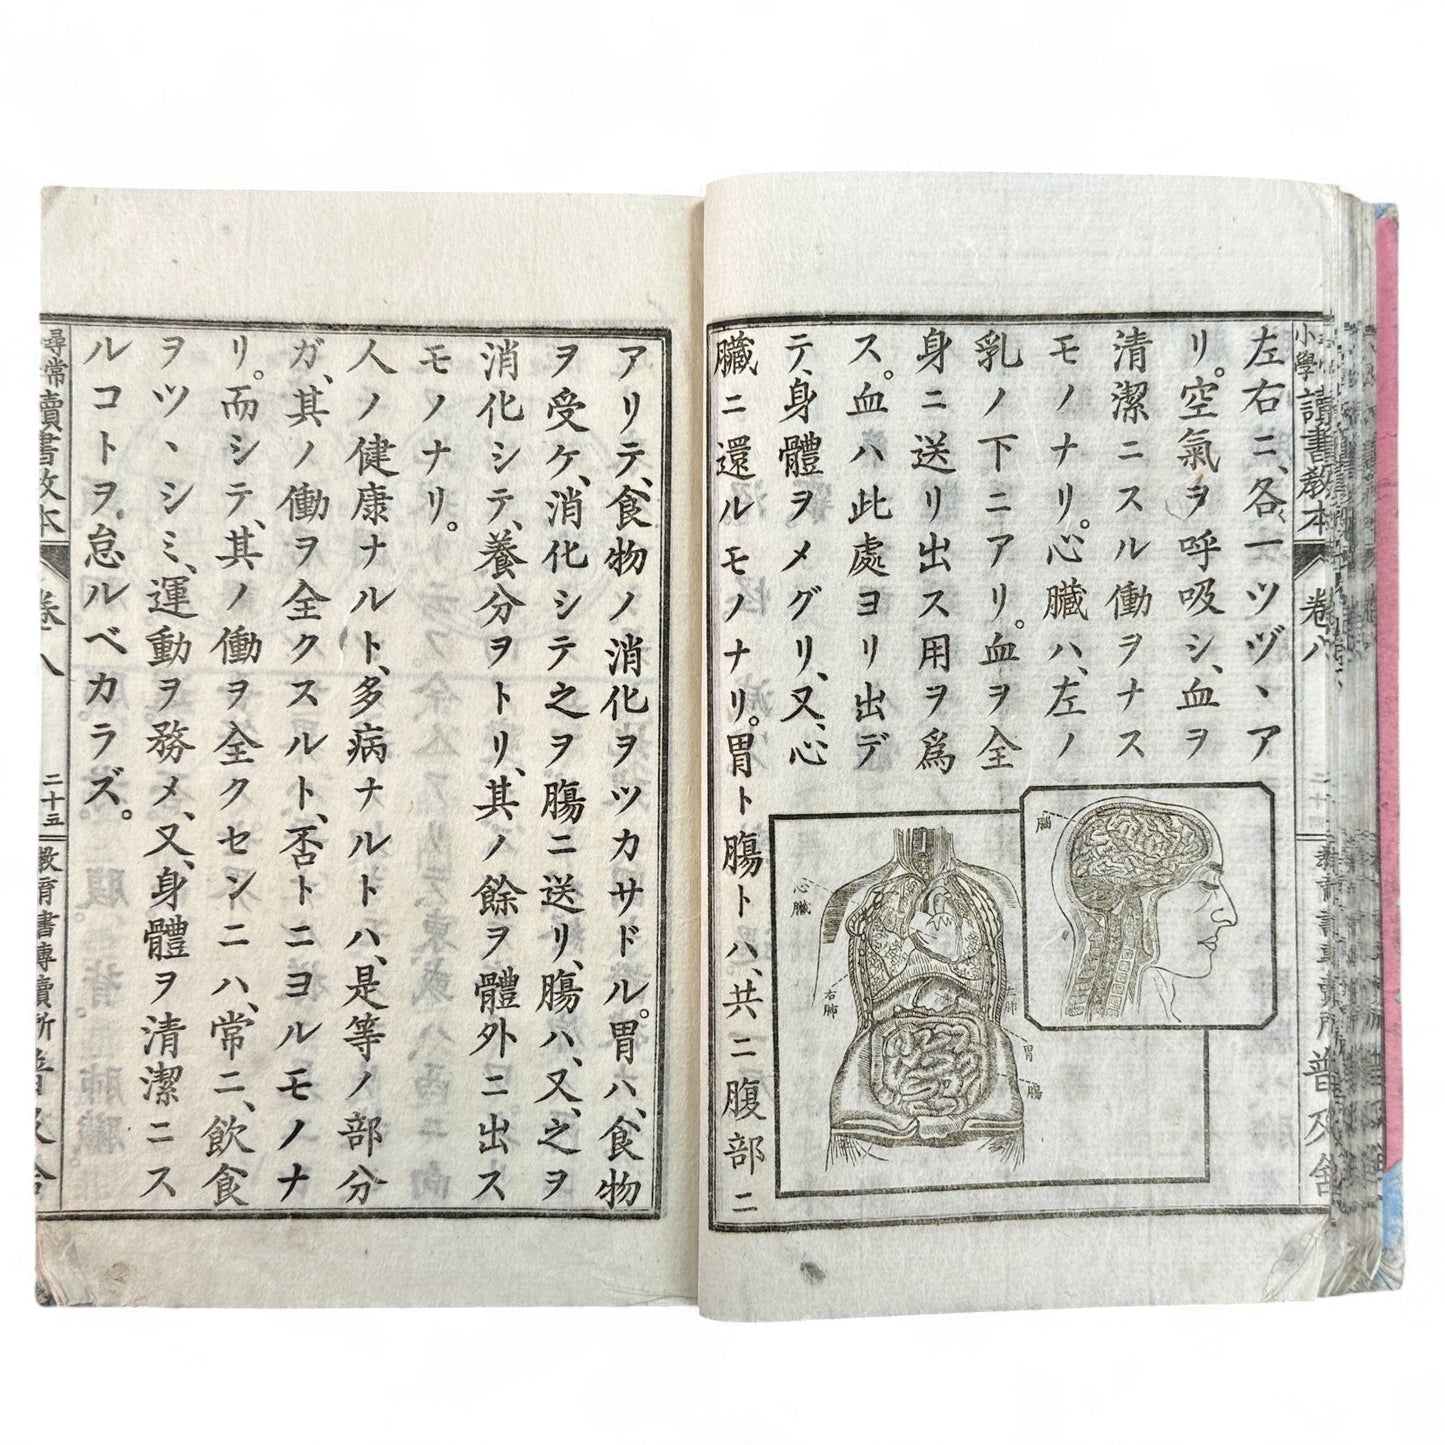 左右ニ、各一ツヅヽア
リ。空氣ヲ呼吸シ、血ヲ
清潔ニスル働ヲナス
モノナリ。心臓ハ、左ノ
乳ノ下ニアリ。血ヲ全
身ニ送リ出ス用ヲ爲
ス。血ハ此處ヨリ出デ
テ、身體ヲメグリ、又、心
臓ニ還ルモノナリ。胃ト腸トハ、共ニ腹部ニ
腦
心臓
右肺
左肺
胃
腸
小學讀書敎本
卷八
普及舍
アリテ、食物ノ消化ヲツカサドル。胃ハ、食物
ヲ受ケ、消化シテ之ヲ腸ニ送リ、腸ハ、又、之ヲ
消化シテ、養分ヲトリ、其ノ餘ヲ體外ニ出ス
モノナリ。
人ノ健康ナルト、多病ナルトハ、是等ノ部分
ガ、其ノ働ヲ全クスルト、否トニヨルモノナ
リ。而シテ、其ノ働ヲ全クセンニハ、常ニ、飮食
ヲツヽシミ、運動ヲ務メ、又、身體ヲ清潔ニス
ルコトヲ怠ルベカラズ。
尋常讀書敎本
卷八
二十五
敎育書專賣所普及舍